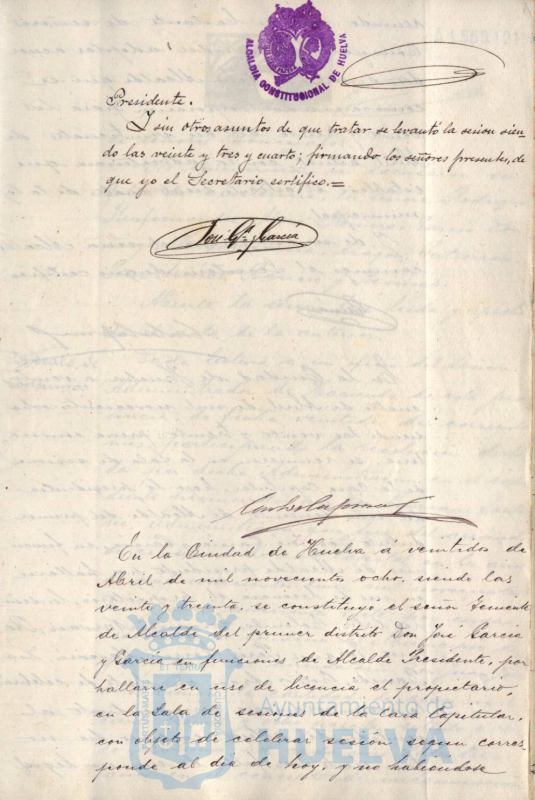 ALCALDIA CONSTITUCIONAL DE HUELVA
Presidente.
Y sin otros asuntos de que tratar se levantó la sesion sien-
do las veinte y tres y cuarto; firmando los señores presentes, de
que yo el Secretario certifico.=
José Gª García
En la Ciudad de Huelva á veintidos de
Abril de mil novecientos ocho, siendo las
veinte y treinta, se constituyó el señor Teniente
de Alcalde del primer distrito Don José García
y García en funciones de Alcalde Presidente, por
hallarse en uso de licencia el propietario,
en la Sala de sesiones de la Casa Capitular,
con objeto de celebrar sesión segun corres-
ponde al día de hoy, y no habiéndose
Ayuntamiento de
HUELVA